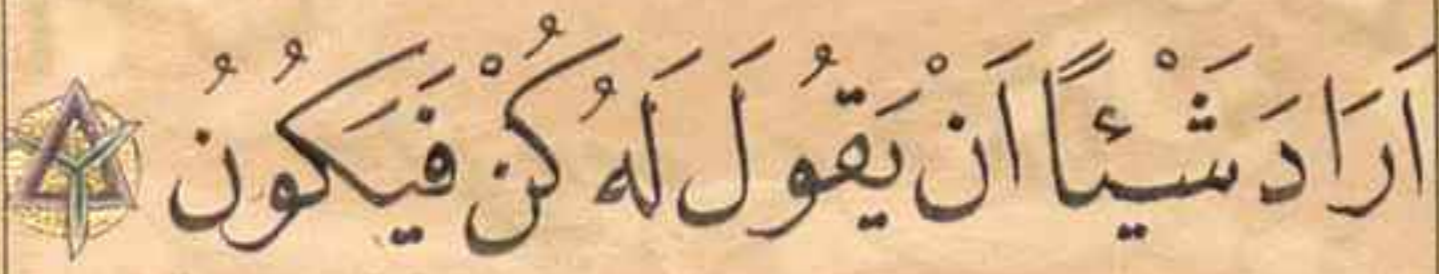 اَرَادَ شَيْئًا اَنْ يَقُولَ لَهُ كُنْ فَيَكُونُ